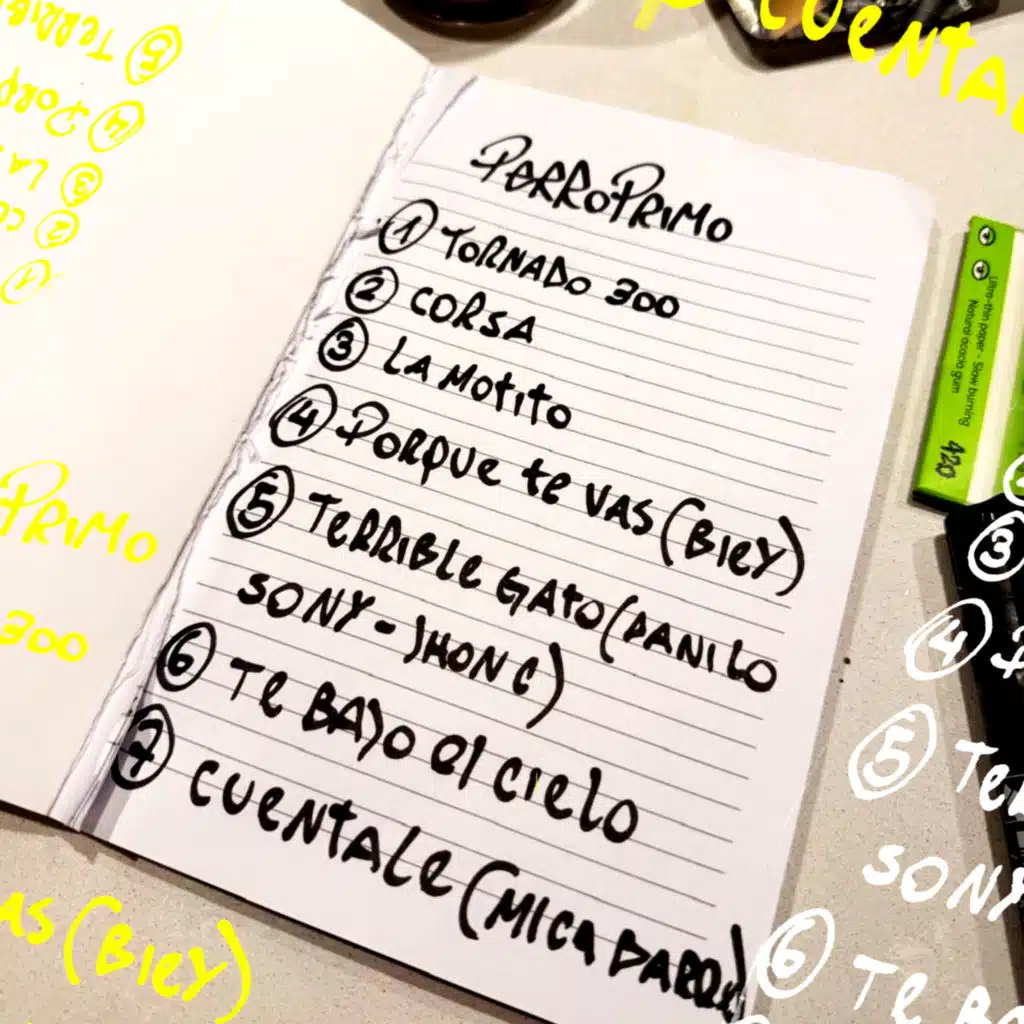 PERROPRIMO
1 TORNADO 300
2 CORSA
3 LA MOTITO
4 PORQUE TE VAS (BIEY)
5 TERRIBLE GATO (DANILO
SONY - JHON C)
6 TE BAJO El CIELO
7 CUENTALE (MICA BARRA)
Ultra-thin paper - Slow burning
Natural acacia gum
420
CUENTA
5 TERRIB
4 PORQ
3 LA
2 CO
1
PRIMO
300
AS (BIEY)
3
4 P
5 TE
SONY
6 TE BA